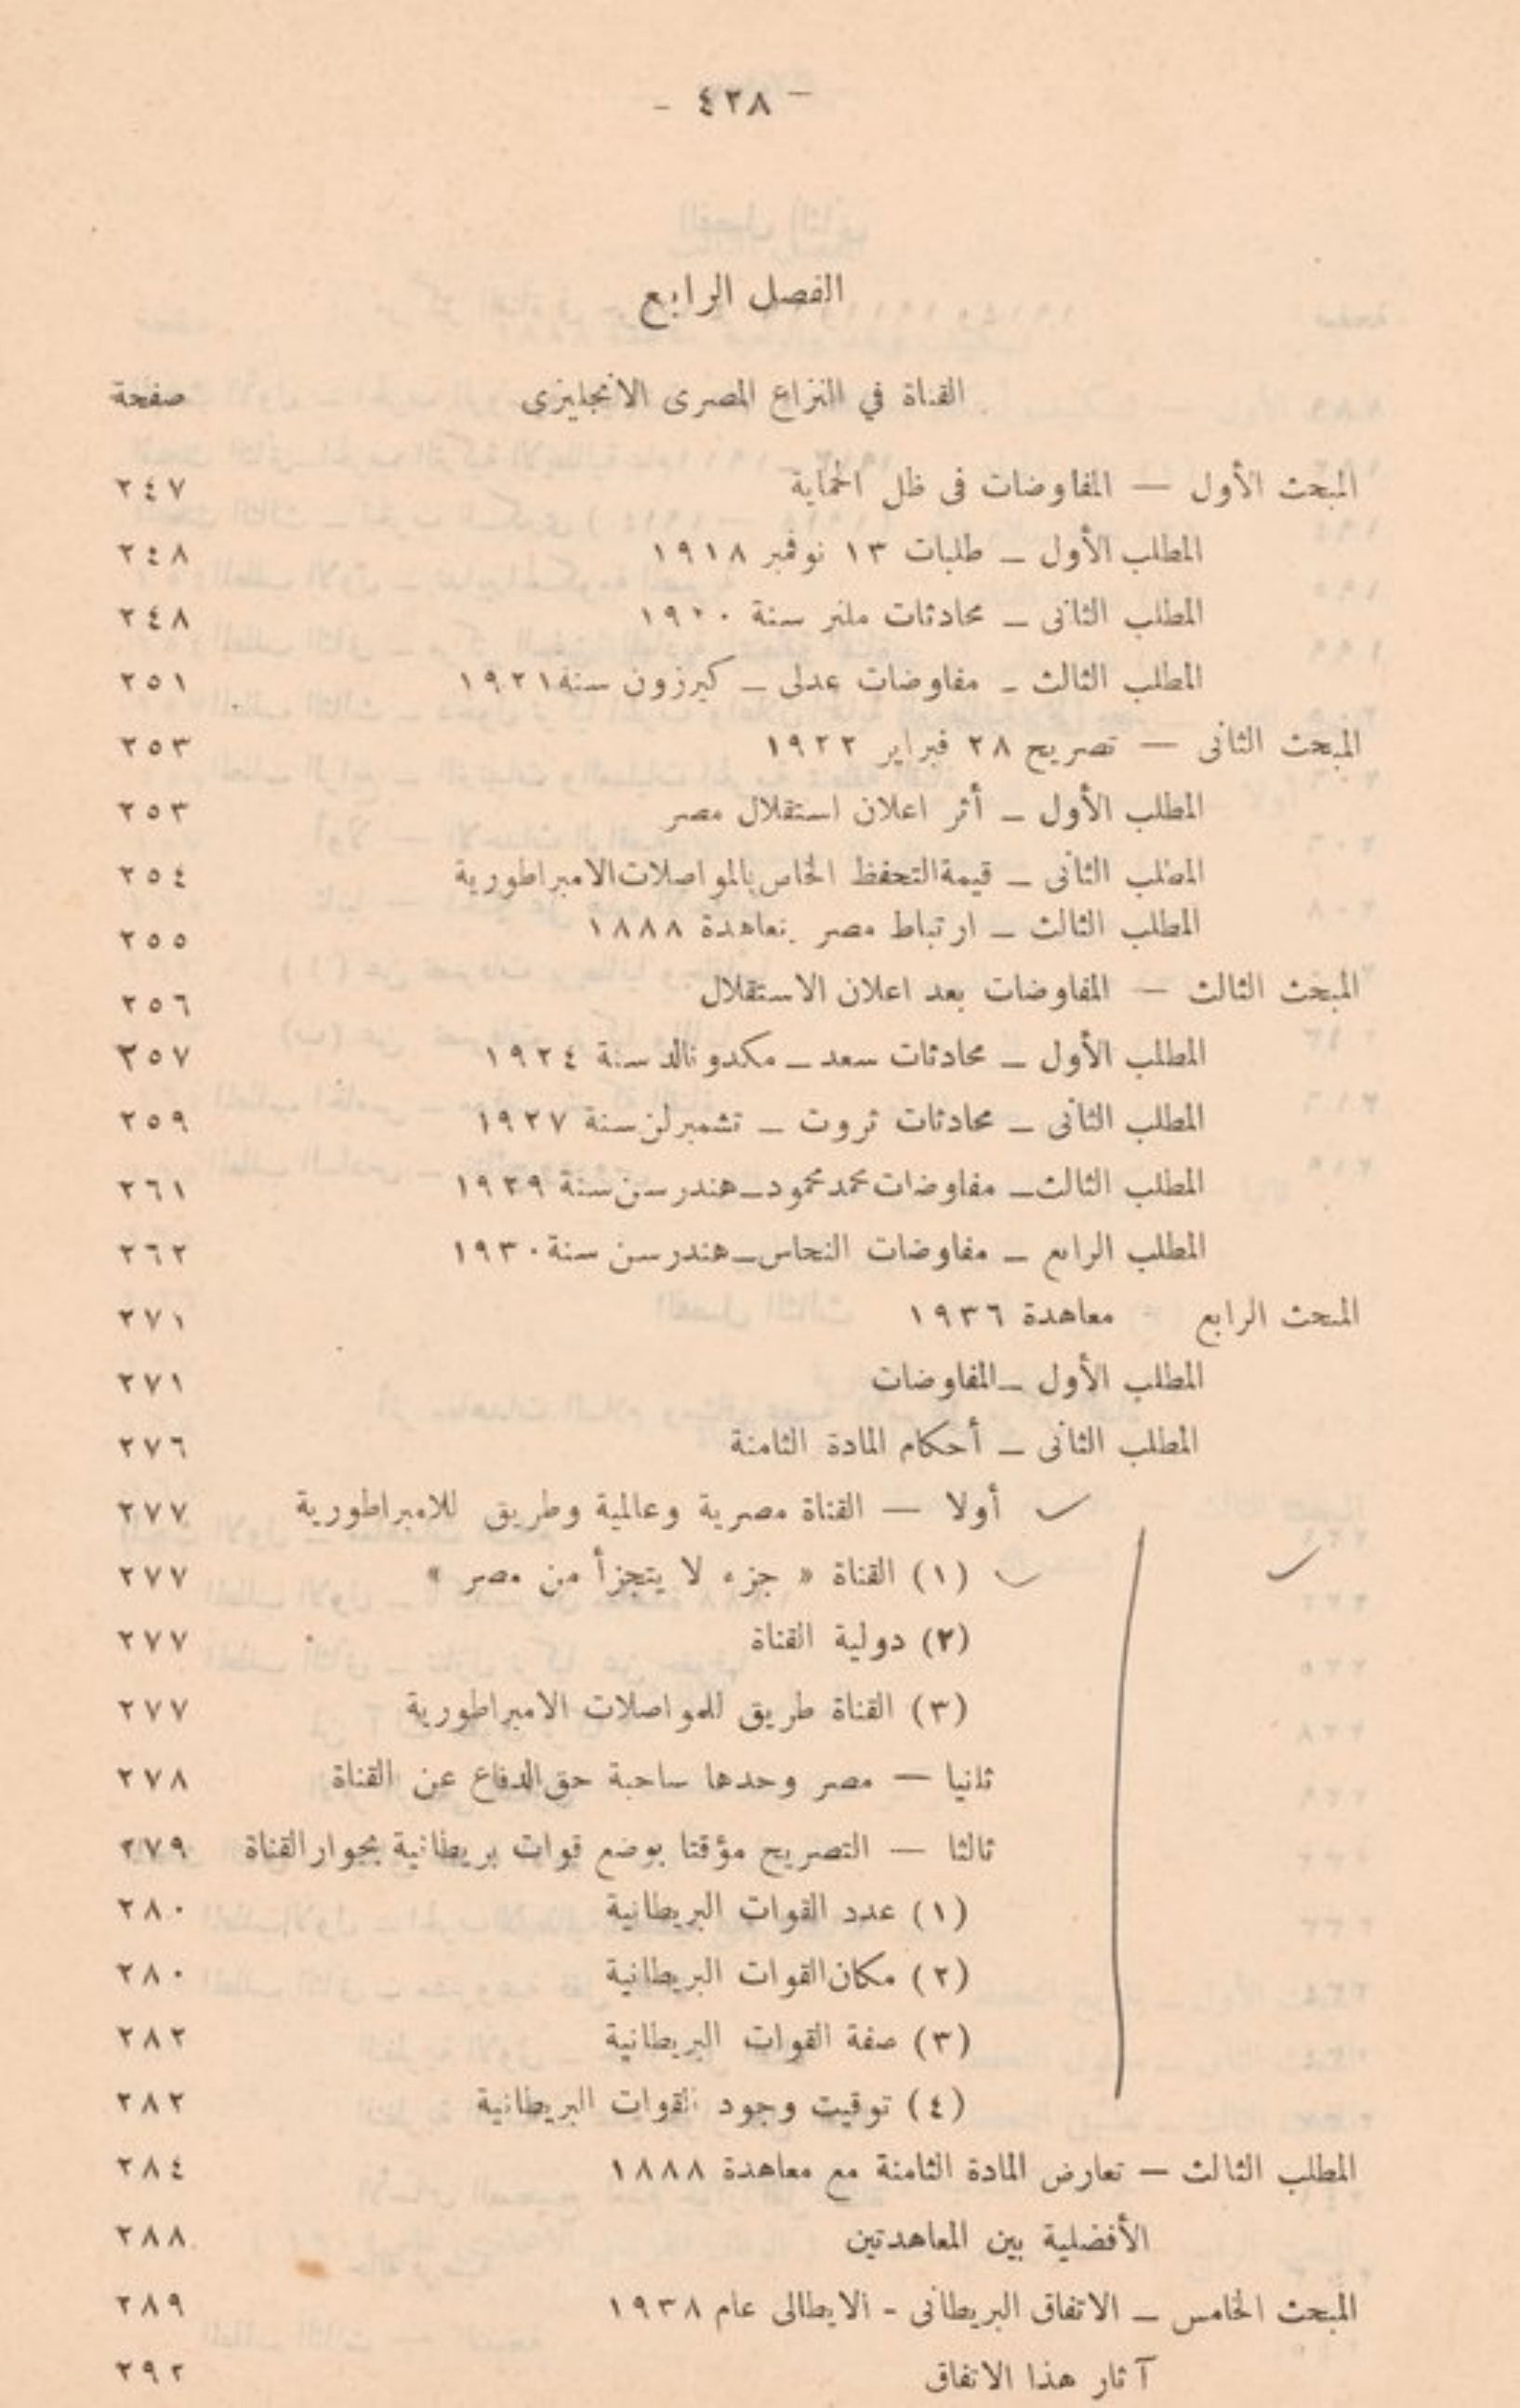 - ٤٢٨ -
الفصل الرابع
القناة في النزاع المصرى الانجليزى صفحة
المبحث الأول — المفاوضات فى ظل الحماية ٢٤٧
المطلب الأول — طلبات ١٣ نوفمبر ١٩١٨ ٢٤٨
المطلب الثانى — محادثات ملنر سنة ١٩٢٠ ٢٤٨
المطلب الثالث — مفاوضات عدلى — كيرزون سنة ١٩٢١ ٢٥١
المبحث الثانى — تصريح ٢٨ فبراير ١٩٢٢ ٢٥٣
المطلب الأول — أثر اعلان استقلال مصر ٢٥٣
المطلب الثانى — قيمة التحفظ الخاص بالمواصلات الامبراطورية ٢٥٤
المطلب الثالث — ارتباط مصر بمعاهدة ١٨٨٨ ٢٥٥
المبحث الثالث — المفاوضات بعد اعلان الاستقلال ٢٥٦
المطلب الأول — محادثات سعد — مكدونالد سنة ١٩٢٤ ٢٥٧
المطلب الثانى — محادثات ثروت — تشمبرلن سنة ١٩٢٧ ٢٥٩
المطلب الثالث — مفاوضات محمد محمود — هندرسن سنة ١٩٢٩ ٢٦١
المطلب الرابع — مفاوضات النحاس — هندرسن سنة ١٩٣٠ ٢٦٢
المبحث الرابع معاهدة ١٩٣٦ ٢٧١
المطلب الأول — المفاوضات ٢٧١
المطلب الثانى — أحكام المادة الثامنة ٢٧٦
أولا — القناة مصرية وعالمية وطريق للامبراطورية ٢٧٧
(١) القناة « جزء لا يتجزأ من مصر » ٢٧٧
(٢) دولية القناة ٢٧٧
(٣) القناة طريق للمواصلات الامبراطورية ٢٧٧
ثانيا — مصر وحدها صاحبة حق الدفاع عن القناة ٢٧٨
ثالثا — التصريح مؤقتا بوضع قوات بريطانية بجوار القناة ٢٧٩
(١) عدد القوات البريطانية ٢٨٠
(٢) مكان القوات البريطانية ٢٨٠
(٣) صفة القوات البريطانية ٢٨٢
(٤) توقيت وجود القوات البريطانية ٢٨٢
المطلب الثالث — تعارض المادة الثامنة مع معاهدة ١٨٨٨ ٢٨٤
الأفضلية بين المعاهدتين ٢٨٨
المبحث الخامس — الاتفاق البريطانى - الايطالى عام ١٩٣٨ ٢٨٩
آثار هذا الاتفاق ٢٩٢